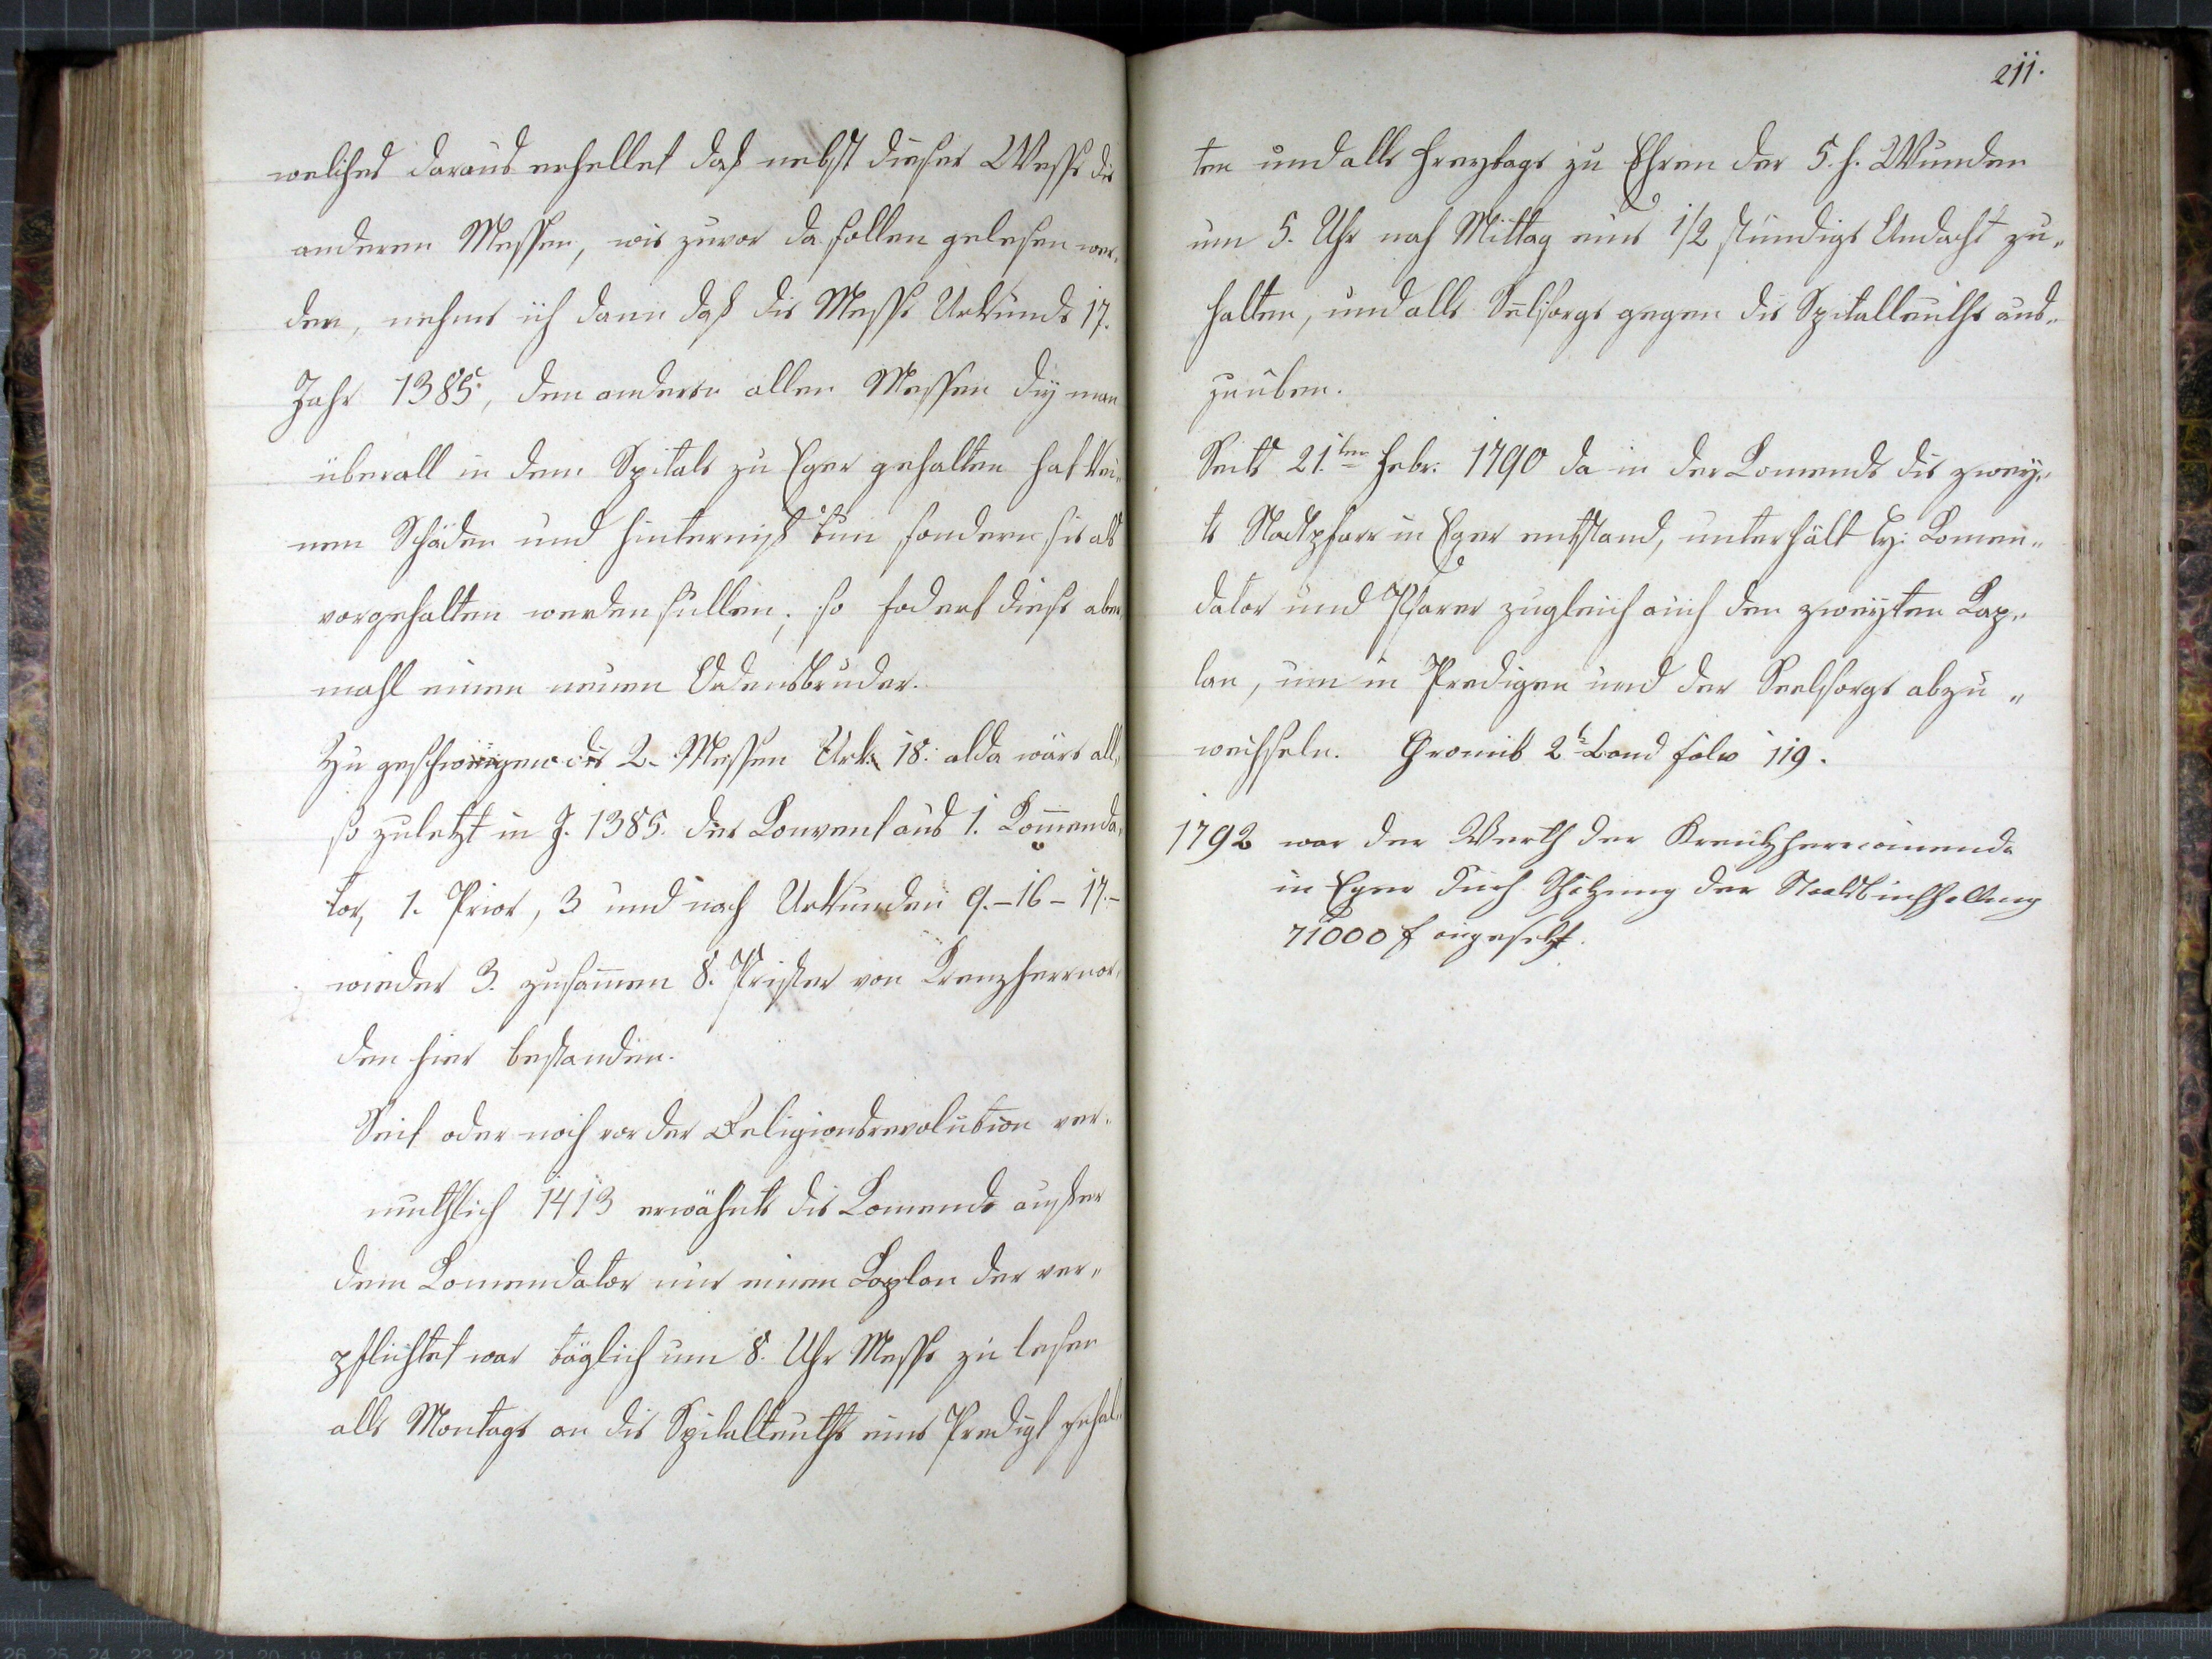 welches daraus erhellet daß nebst dieser Messe die
anderen Messen, wie zuvor da sollen gelesen wer„
den, nehme ich dann daß die Messe Urkunde 17.
Jahr 1385, den andern allen Messen dy man
überall in dem Spitale zu Eger gehalten hat kei„
nen Schaden und hinterniß tun sondern sie als
vorgehalten werden sullen; so fodert diese aber„
mahl einen neuen Ordensbruder.
Zu geschweigen die 2. Messen Urk. 18. alda wäre all„
so zuletzt in J. 1385. der Convent aus 1. Com̄enda„
tor, 1. Prior, 3 und nach Urkunden 9.–16–17.–
wieder 3. zusam̄en 8. Prister von Kreuzherrnor„
den hier bestanden.
Seit oder noch vor der Religionsrevolution ver„
muthlich 1413 ernährte die Comende außer
dem Comendator nur einen Kaplan der ver„
pflichtet war täglich um 8. Uhr Messe zu lesen
alle Montage an die Spitalleuthe eine Predigt zuhal„
211.
ten und alle Freytage zu Ehren der 5. h. Wunden
um 5. Uhr nach Mittag eine 1/2 stündige Andacht zu„
halten, und alle Selsorge gegen die Spitalleuthe aus„
zuüben.
Seits 21.ten Febr: 1790 da in der Comende die zwey„
te Stadtpfarr in Eger entstand, unterhält H: Comen„
dator und Pfarer zugleich auch den zweyten Kap„
lan, um in Predigen und der Seelsorge abzu„
wechseln. Gromis 2t Band folio 119.
1792 war der Werth der Kreutzherrncomende
in Eger durch Schätzung der Stadtbuchhaltung
71000 f angesetzt.